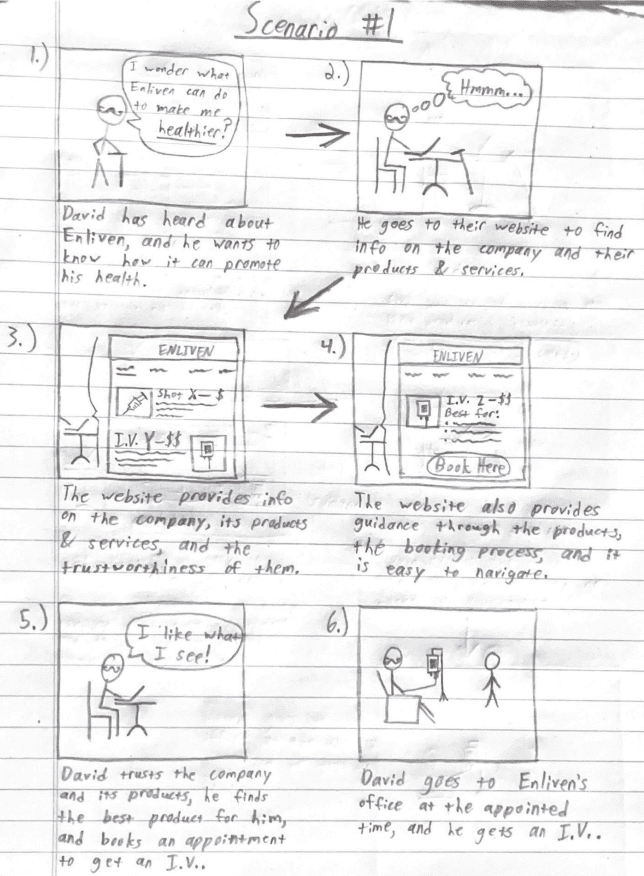 Scenario #1
1.)
I wonder what
Enliven can do
to make me
healthier?
David has heard about
Enliven, and he wants to
know how it can promote
his health.
2.)
Hmmm...
He goes to their website to find
info on the company and their
products & services.
3.)
ENLIVEN
Shot X-$
I.V. Y-$$
The website provides info
on the company, its products
& services, and the
trustworthiness of them.
4.)
ENLIVEN
I.V. Z-$$
Best for:
Book Here
The website also provides
guidance through the products,
the booking process, and it
is easy to navigate.
5.)
I like what
I see!
David trusts the company
and its products, he finds
the best product for him,
and books an appointment
to get an I.V..
6.)
David goes to Enliven's
office at the appointed
time, and he gets an I.V..